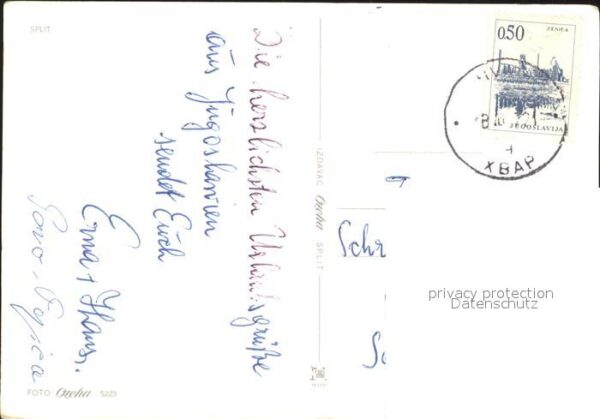 SPLIT
Die herzlichsten Urlaubsgrüße
aus Jugoslawien
sendet Euch
Erna + Hans.
FOTO Orcha 5229
IZDAVAČ Orcha SPLIT
0,50
ZENICA
JUGOSLAVIJA
ХВАР
Schr
privacy protection
Datenschutz